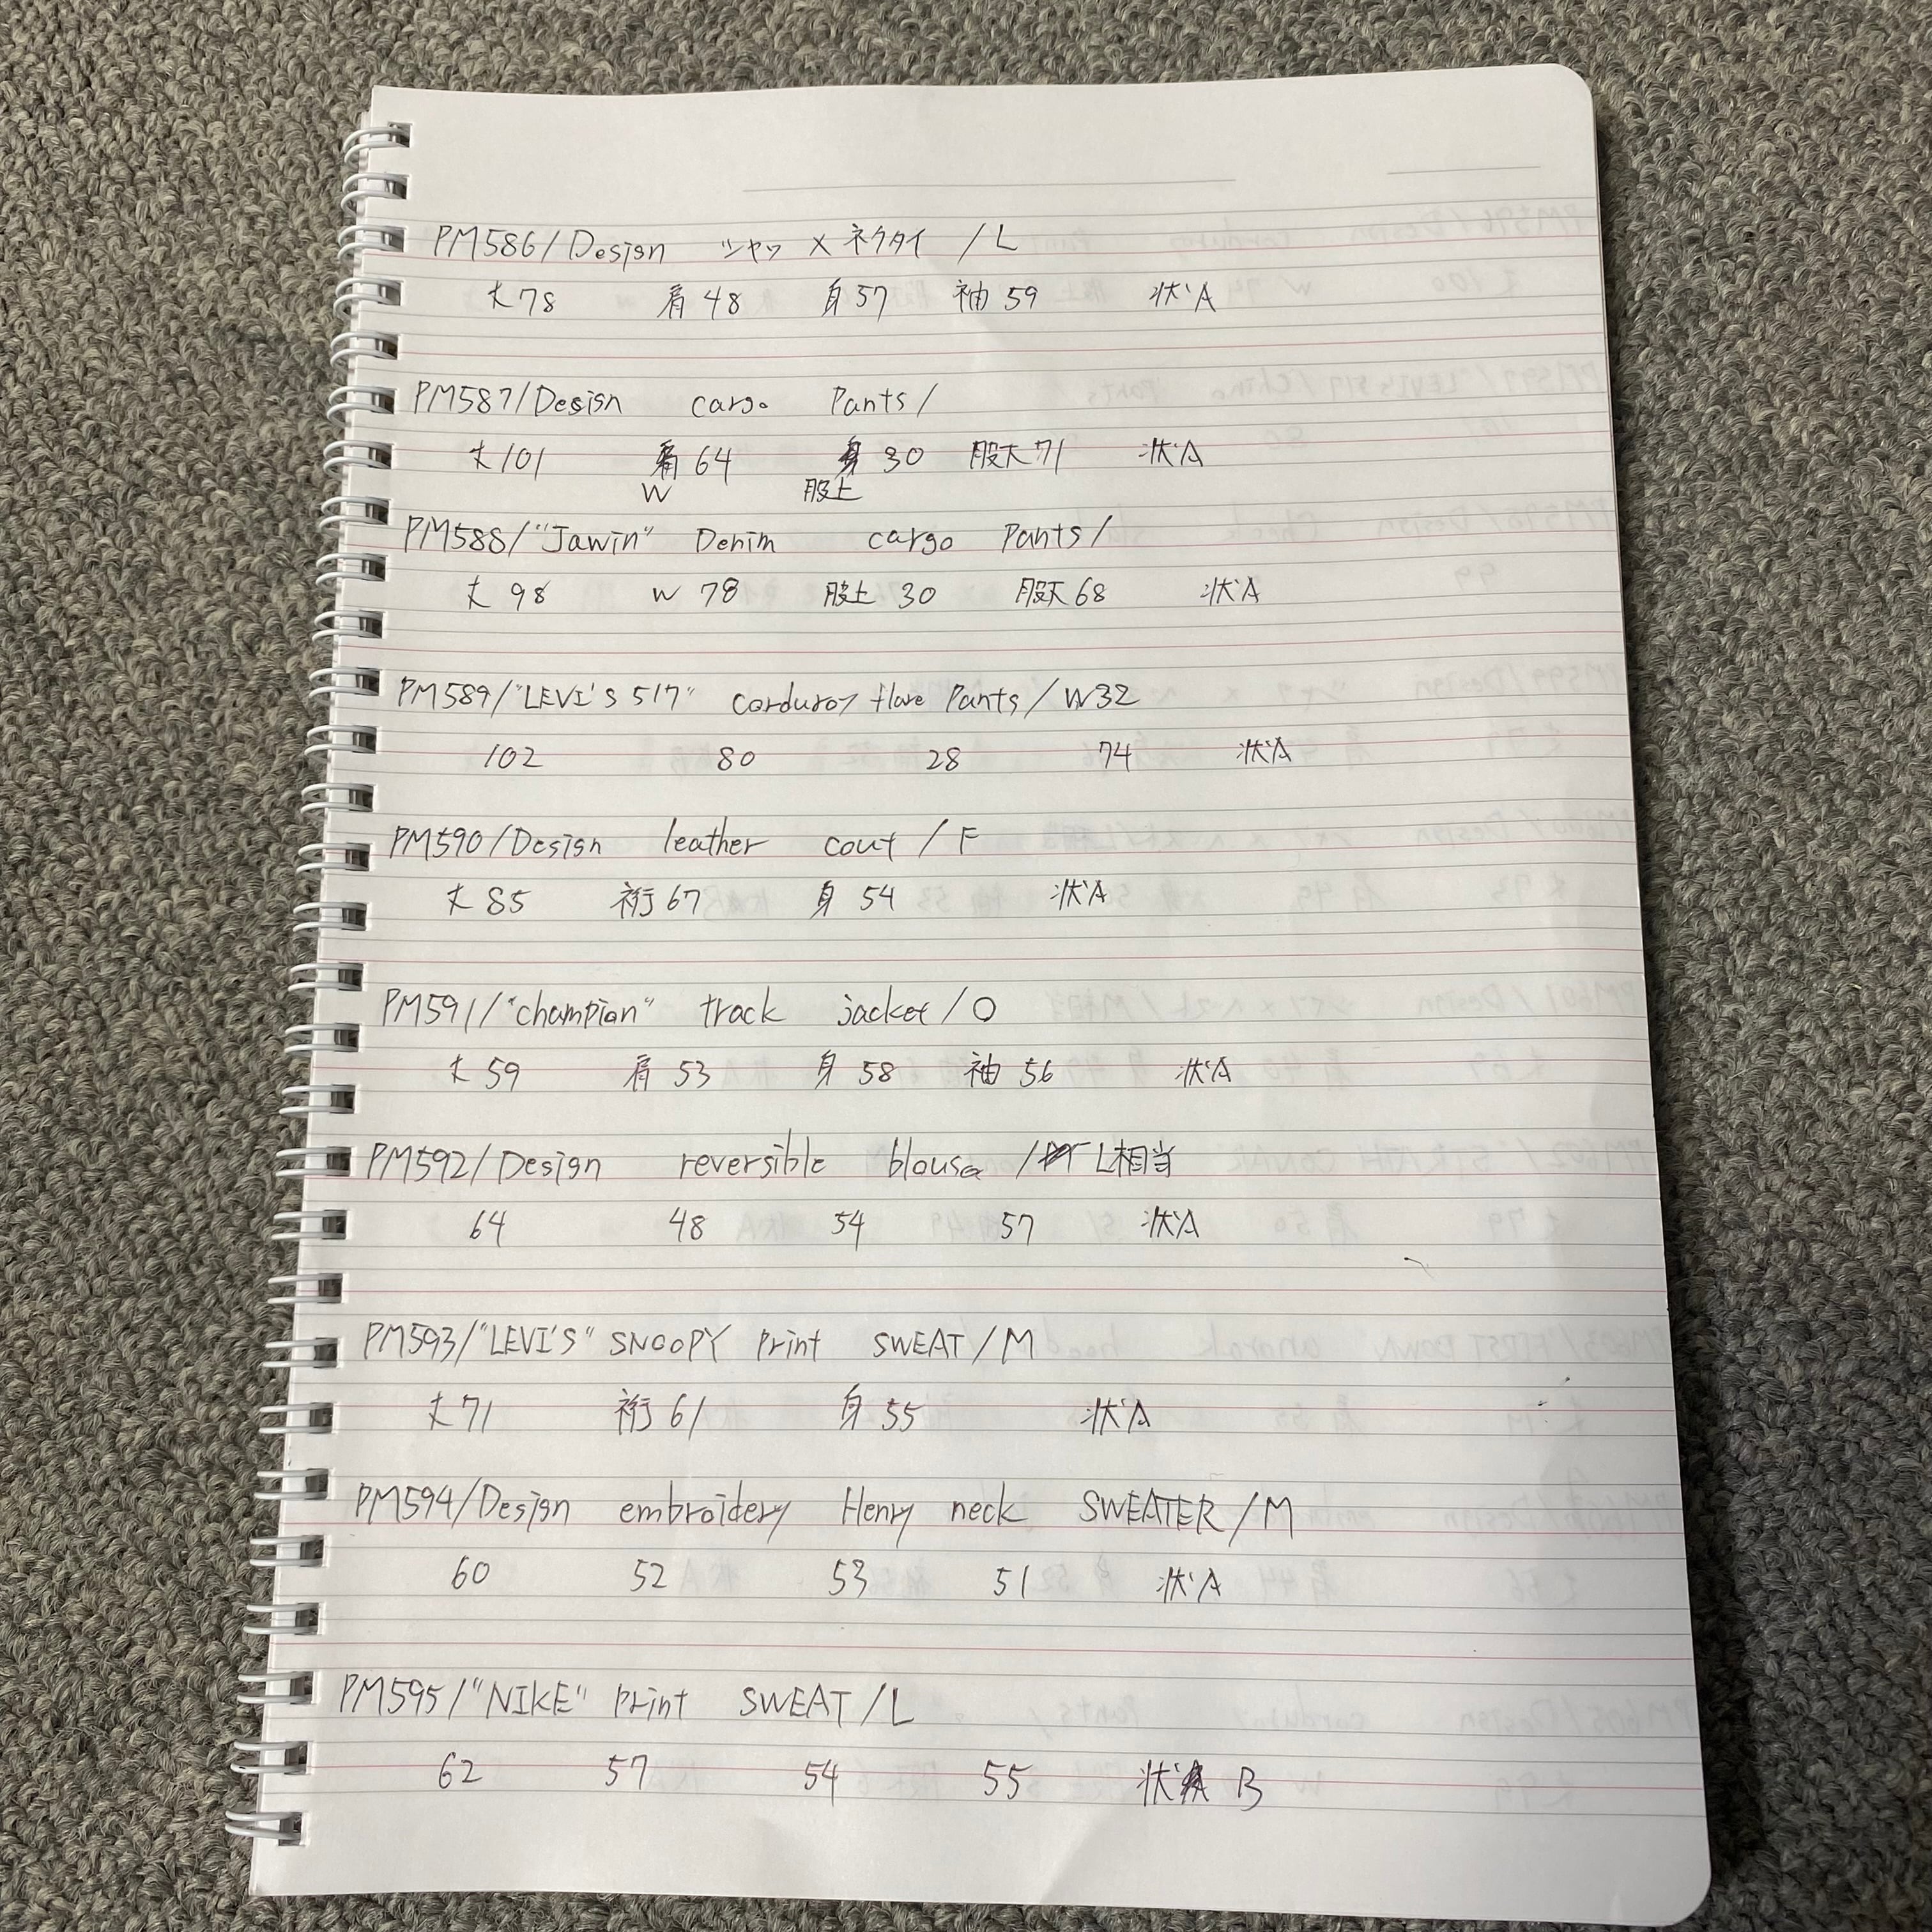 PM586/Design シャツ × ネクタイ /L
丈78 肩48 身57 袖59 状A
PM587/Design cargo Pants/
丈101 64 30 股下71 状A
W 股上
PM588/"Jawin" Denim cargo Pants/
丈98 W 78 股上30 股下68 状A
PM589/"LEVI'S 517" corduroy flare Pants/W32
102 80 28 74 状A
PM590/Design leather cout/F
丈85 裄67 身54 状A
PM591/"champion" track jacket/O
丈59 肩53 身58 袖56 状A
PM592/Design reversible blouse/L相当
64 48 54 57 状A
PM593/"LEVI'S" SNOOPY Print SWEAT/M
丈71 裄61 身55 状A
PM594/Design embroidery Henry neck SWEATER/M
60 52 53 51 状A
PM595/"NIKE" Print SWEAT/L
62 57 54 55 状B